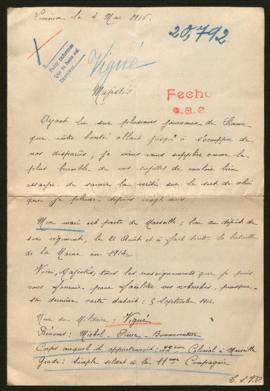 le 4 Mai 1916.
20,792
Vigué
Majesté
Fecho
Ayant lu sur plusieurs journaux de France
que votre bonté allait jusqu'à s'occuper de
nos disparus, je viens vous supplier moi la
plus humble de vos sujettes de vouloir bien
essayer de savoir la vérité sur le sort de celui
que je pleure, depuis vingt mois
Mon mari est parti de Marseille, lieu du dépôt de
son régiment, le 21 Août et a fait toute la bataille
de la Marne en 1914.
Voici, Majesté, tous les renseignements que je puis
vous fournir, pour faciliter vos recherches, puisque
sa dernière carte datait, 5 Septembre 1914.
Nom du Militaire, Vigué
Prénoms: Michel - Pierre - Bonaventure
Corps auquel il appartenait: Colonial à Marseille
Grade: Simple soldat à la 11ème Compagnie